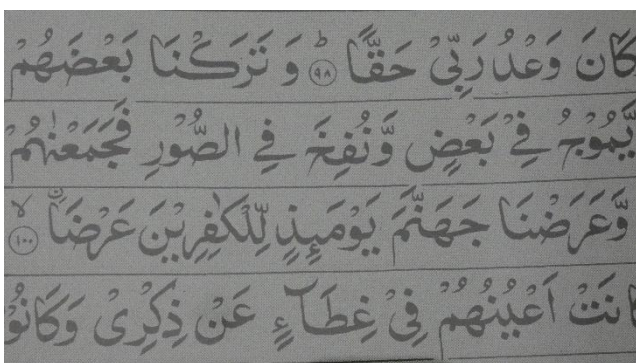 كَانَ وَعْدُ رَبِّيْ حَقًّا ؕ ﴿۹۸﴾ وَ تَرَكْنَا بَعْضَهُمْ
يَّمُوْجُ فِيْ بَعْضٍ وَّ نُفِخَ فِي الصُّوْرِ فَجَمَعْنٰهُمْ
وَّ عَرَضْنَا جَهَنَّمَ يَوْمَىِٕذٍ لِّلْكٰفِرِيْنَ عَرْضَا ۙ ﴿۱۰۰﴾
كَانَتْ اَعْيُنُهُمْ فِيْ غِطَآءٍ عَنْ ذِكْرِيْ وَ كَانُوْ